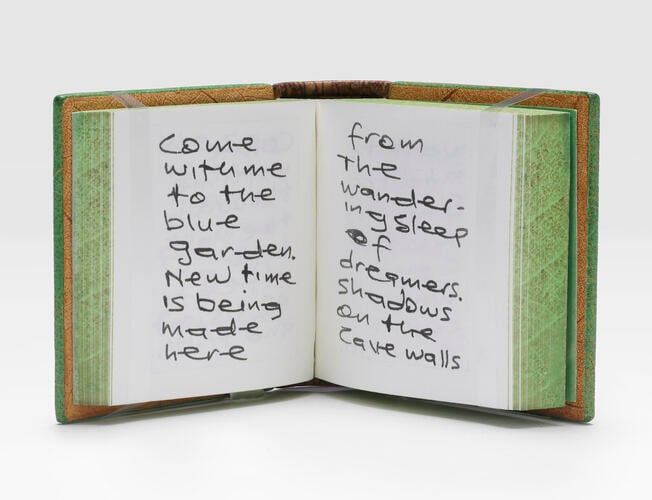 Come
with me
to the
blue
garden.
New time
is being
made
here
from
The
wander-
ing sleep
of
dreamers.
Shadows
on the
Cave walls